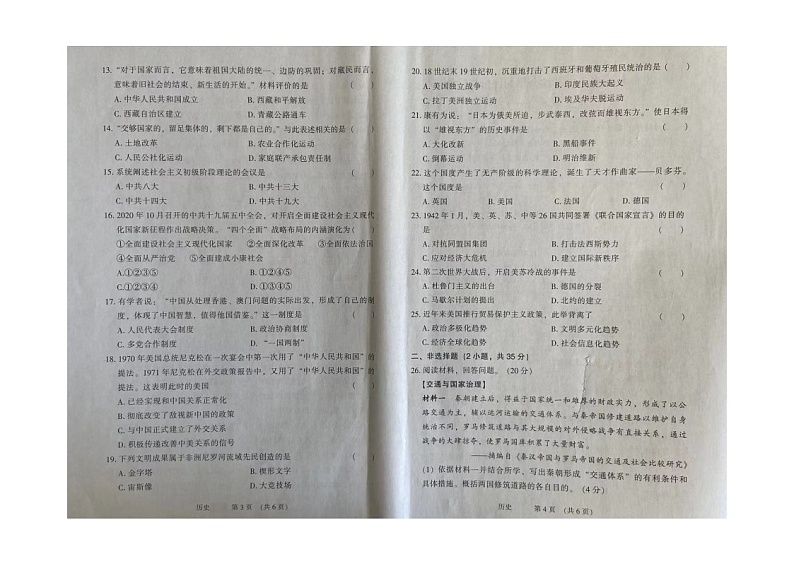 13. “对于国家而言，它意味着祖国大陆的统一、边防的巩固；对藏民而言，
意味着旧社会的结束、新生活的开始。”材料评价的是 （ ）
A. 中华人民共和国成立 B. 西藏和平解放
C. 西藏自治区建立 D. 青藏公路通车
14. “交够国家的，留足集体的，剩下都是自己的。”与此表述相关的是（ ）
A. 土地改革 B. 农业合作化运动
C. 人民公社化运动 D. 家庭联产承包责任制
15. 系统阐述社会主义初级阶段理论的会议是 （ ）
A. 中共八大 B. 中共十三大
C. 中共十四大 D. 中共十九大
16. 2020 年 10 月召开的中共十九届五中全会，对开启全面建设社会主义现代
化国家新征程作出战略决策。“四个全面”战略布局的内涵演化为（ ）
①全面建设社会主义现代化国家 ②全面深化改革 ③全面依法治国
④全面从严治党 ⑤全面建成小康社会
A.①②③⑤ B.①②④⑤
C.①②③④ D.①③④⑤
17. 有学者说：“中国从处理香港、澳门问题的实际出发，形成了自己的制
度，体现了中国智慧，值得他国借鉴。”这一制度是 （ ）
A. 人民代表大会制度 B. 政治协商制度
C. 多党合作制度 D. “一国两制”
18. 1970 年美国总统尼克松在一次宴会中第一次用了“中华人民共和国”的
提法。1971 年尼克松在外交政策报告中，又用了“中华人民共和国”的
提法。这表明此时的美国 （ ）
A. 已经实现和中国关系正常化
B. 彻底改变了敌视新中国的政策
C. 与中国正式建立了外交关系
D. 积极传递改善中美关系的信号
19. 下列文明成果属于非洲尼罗河流域先民创造的是 （ ）
A. 金字塔 B. 楔形文字
C. 宙斯像 D. 大竞技场
历史 第 3 页 (共 6 页)
20. 18 世纪末 19 世纪初，沉重地打击了西班牙和葡萄牙殖民统治的是（ ）
A. 美国独立战争 B. 印度民族大起义
C. 拉丁美洲独立运动 D. 埃及华夫脱运动
21. 康有为说：“日本为俄美所迫，步武泰西，改弦而雄视东方。”使日本得
以“雄视东方”的历史事件是 （ ）
A. 大化改新 B. 黑船事件
C. 倒幕运动 D. 明治维新
22. 这个国度产生了无产阶级的科学理论，诞生了天才作曲家——贝多芬。
这个国度是 （ ）
A. 英国 B. 美国 C. 法国 D. 德国
23. 1942 年 1 月，美、英、苏、中等 26 国共同签署《联合国家宣言》的目的
是 （ ）
A. 对抗同盟国集团 B. 打击法西斯势力
C. 应对经济大危机 D. 建立国际新秩序
24. 第二次世界大战后，开启美苏冷战的事件是 （ ）
A. 杜鲁门主义的出台 B. 德国的分裂
C. 马歇尔计划的提出 D. 北约的建立
25. 近年来美国推行贸易保护主义政策，此举背离了 （ ）
A. 政治多极化趋势 B. 文明多元化趋势
C. 经济全球化趋势 D. 社会信息化趋势
二、非选择题 (2 小题，共 35 分)
26. 阅读材料，回答问题。(20 分)
【交通与国家治理】
材料一 秦朝建立后，得益于国家统一和雄厚的财政实力，形成了以公
路交通为主，辅以运河运输的交通体系。与秦帝国修建道路以维护自身
统治不同，罗马修筑道路与其大规模的对外侵略战争有直接关系，通过
战争的大肆掠夺，使罗马国库积累了大量财富。
——摘编自《秦汉帝国与罗马帝国的交通及社会比较研究》
(1) 依据材料一并结合所学，写出秦朝形成“交通体系”的有利条件和
具体措施。概括两国修筑道路的各自目的。(4 分)
历史 第 4 页 (共 6 页)